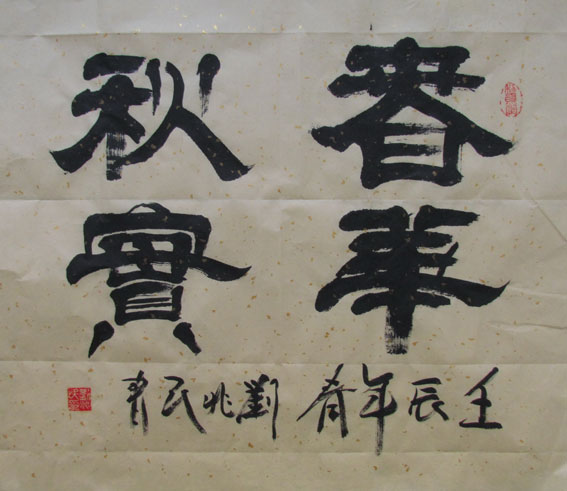 春華
秋實
壬辰年春 劉兆民書